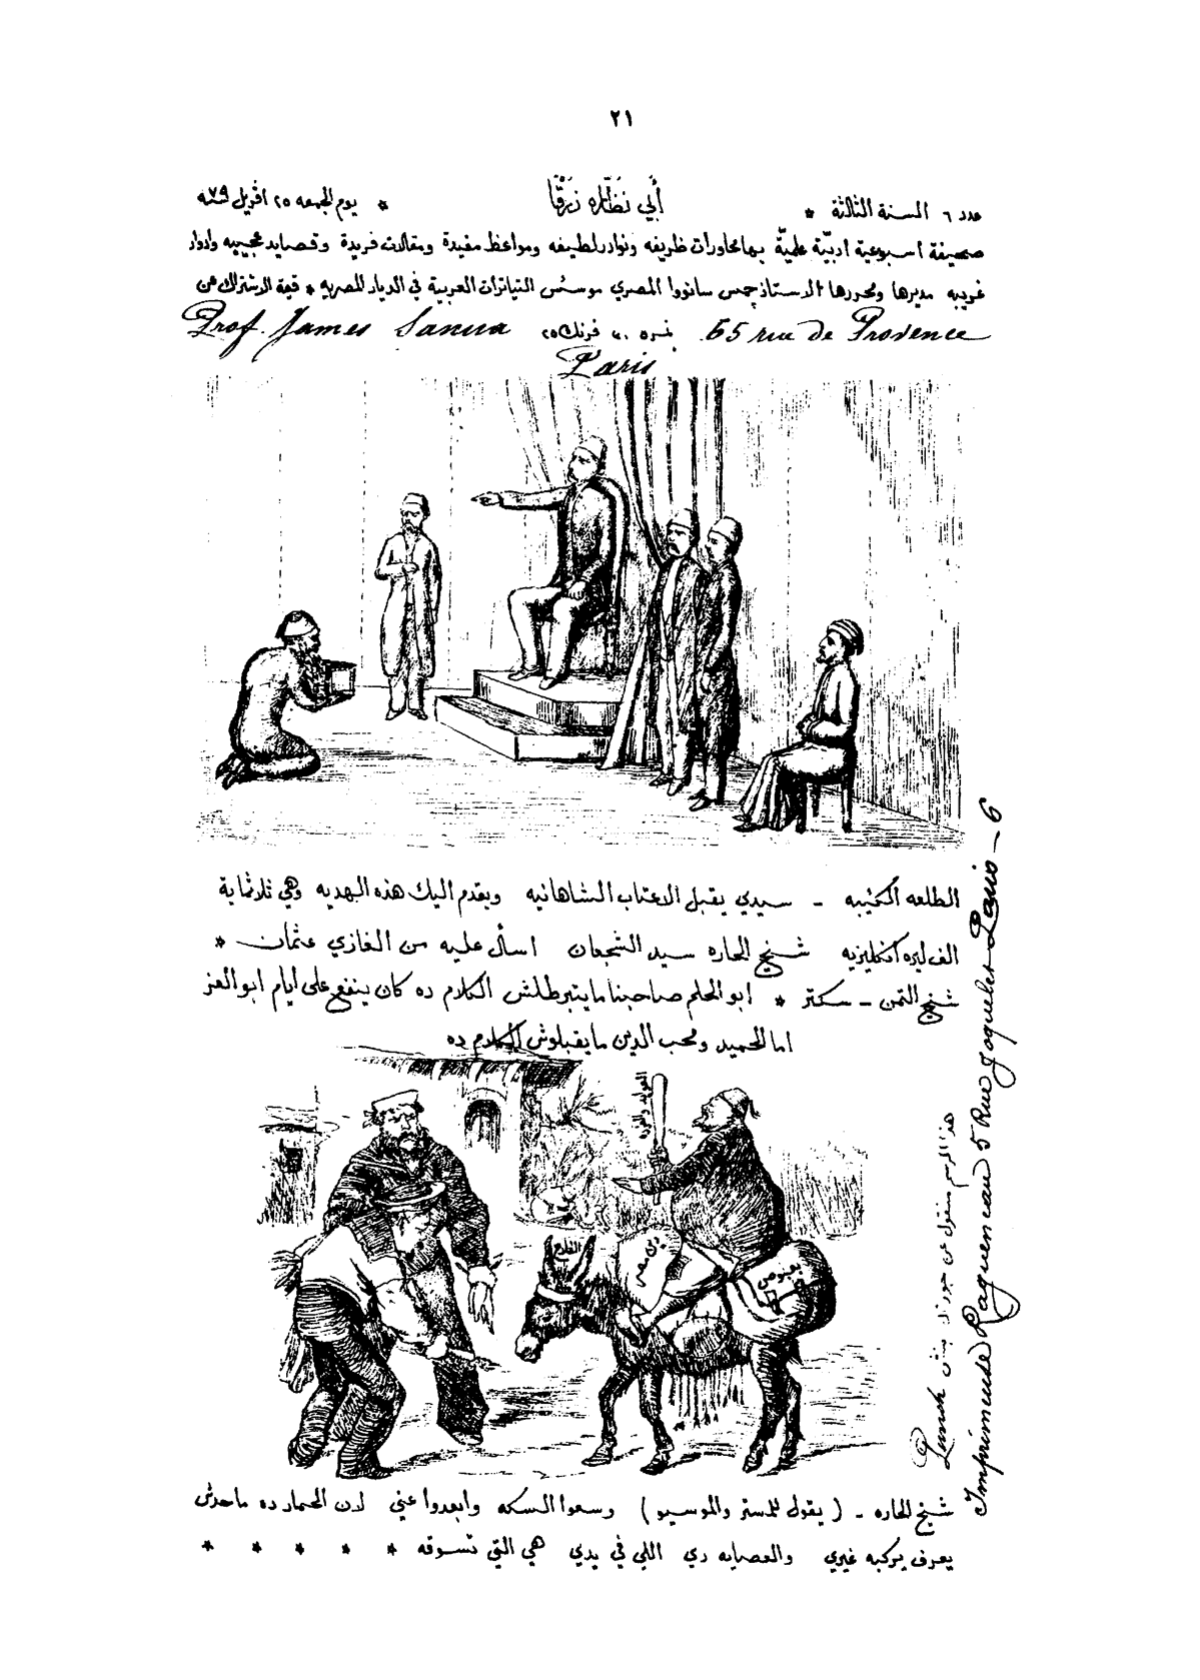 ٢١
عدد ٦ السنة الثالثة * أبي نَظَّاره زَرْقَا * يوم الجمعه ٢٥ افريل سنة ٧٩
صحيفة اسبوعية ادبيّة علميّة بها محاورات ظريفه ونوادر لطيفه ومواعظ مفيدة ومقالات فريدة وقصايد عجيبه وادوار
غريبه مديرها ومحررها الاستاذ جمس سانووا المصري موسّس التياترات العربية في الديار المصريه * قيمة الاشتراك عن
Prof. James Sanua نمره فرنك ٢٥ 65 rue de Provence
Paris
الطلعه الكئيبه - سيدي يقبل الاعتاب الشاهانيه ويقدم اليك هذه الهديه وهي ثلاثماية
الف ليره انكليزيه شيخ الحاره سيد الشجعان اسأل عليه من الغازي عثمان *
شيخ التمن - سكتر * ابو الحلم صاحبنا ما يتبرطلش الكلام ده كان ينفع على ايام ابو العز
اما الحميد ومحب الدين ما يقبلوش الكلام ده
الفلاح
دين مصر
هذا الرسم منقول عن جورنال بنش
Punch
Imprimerie Ragueneau 5 Rue Joquelet Paris - 6
شيخ الحاره - (يقول للمستر والموسيو) وسعوا السكه وابعدوا عني لان الحمار ده ماحدش
يعرف يركبه غيري والعصايه دي اللي في يدي هي التي تسوقه * * * * *